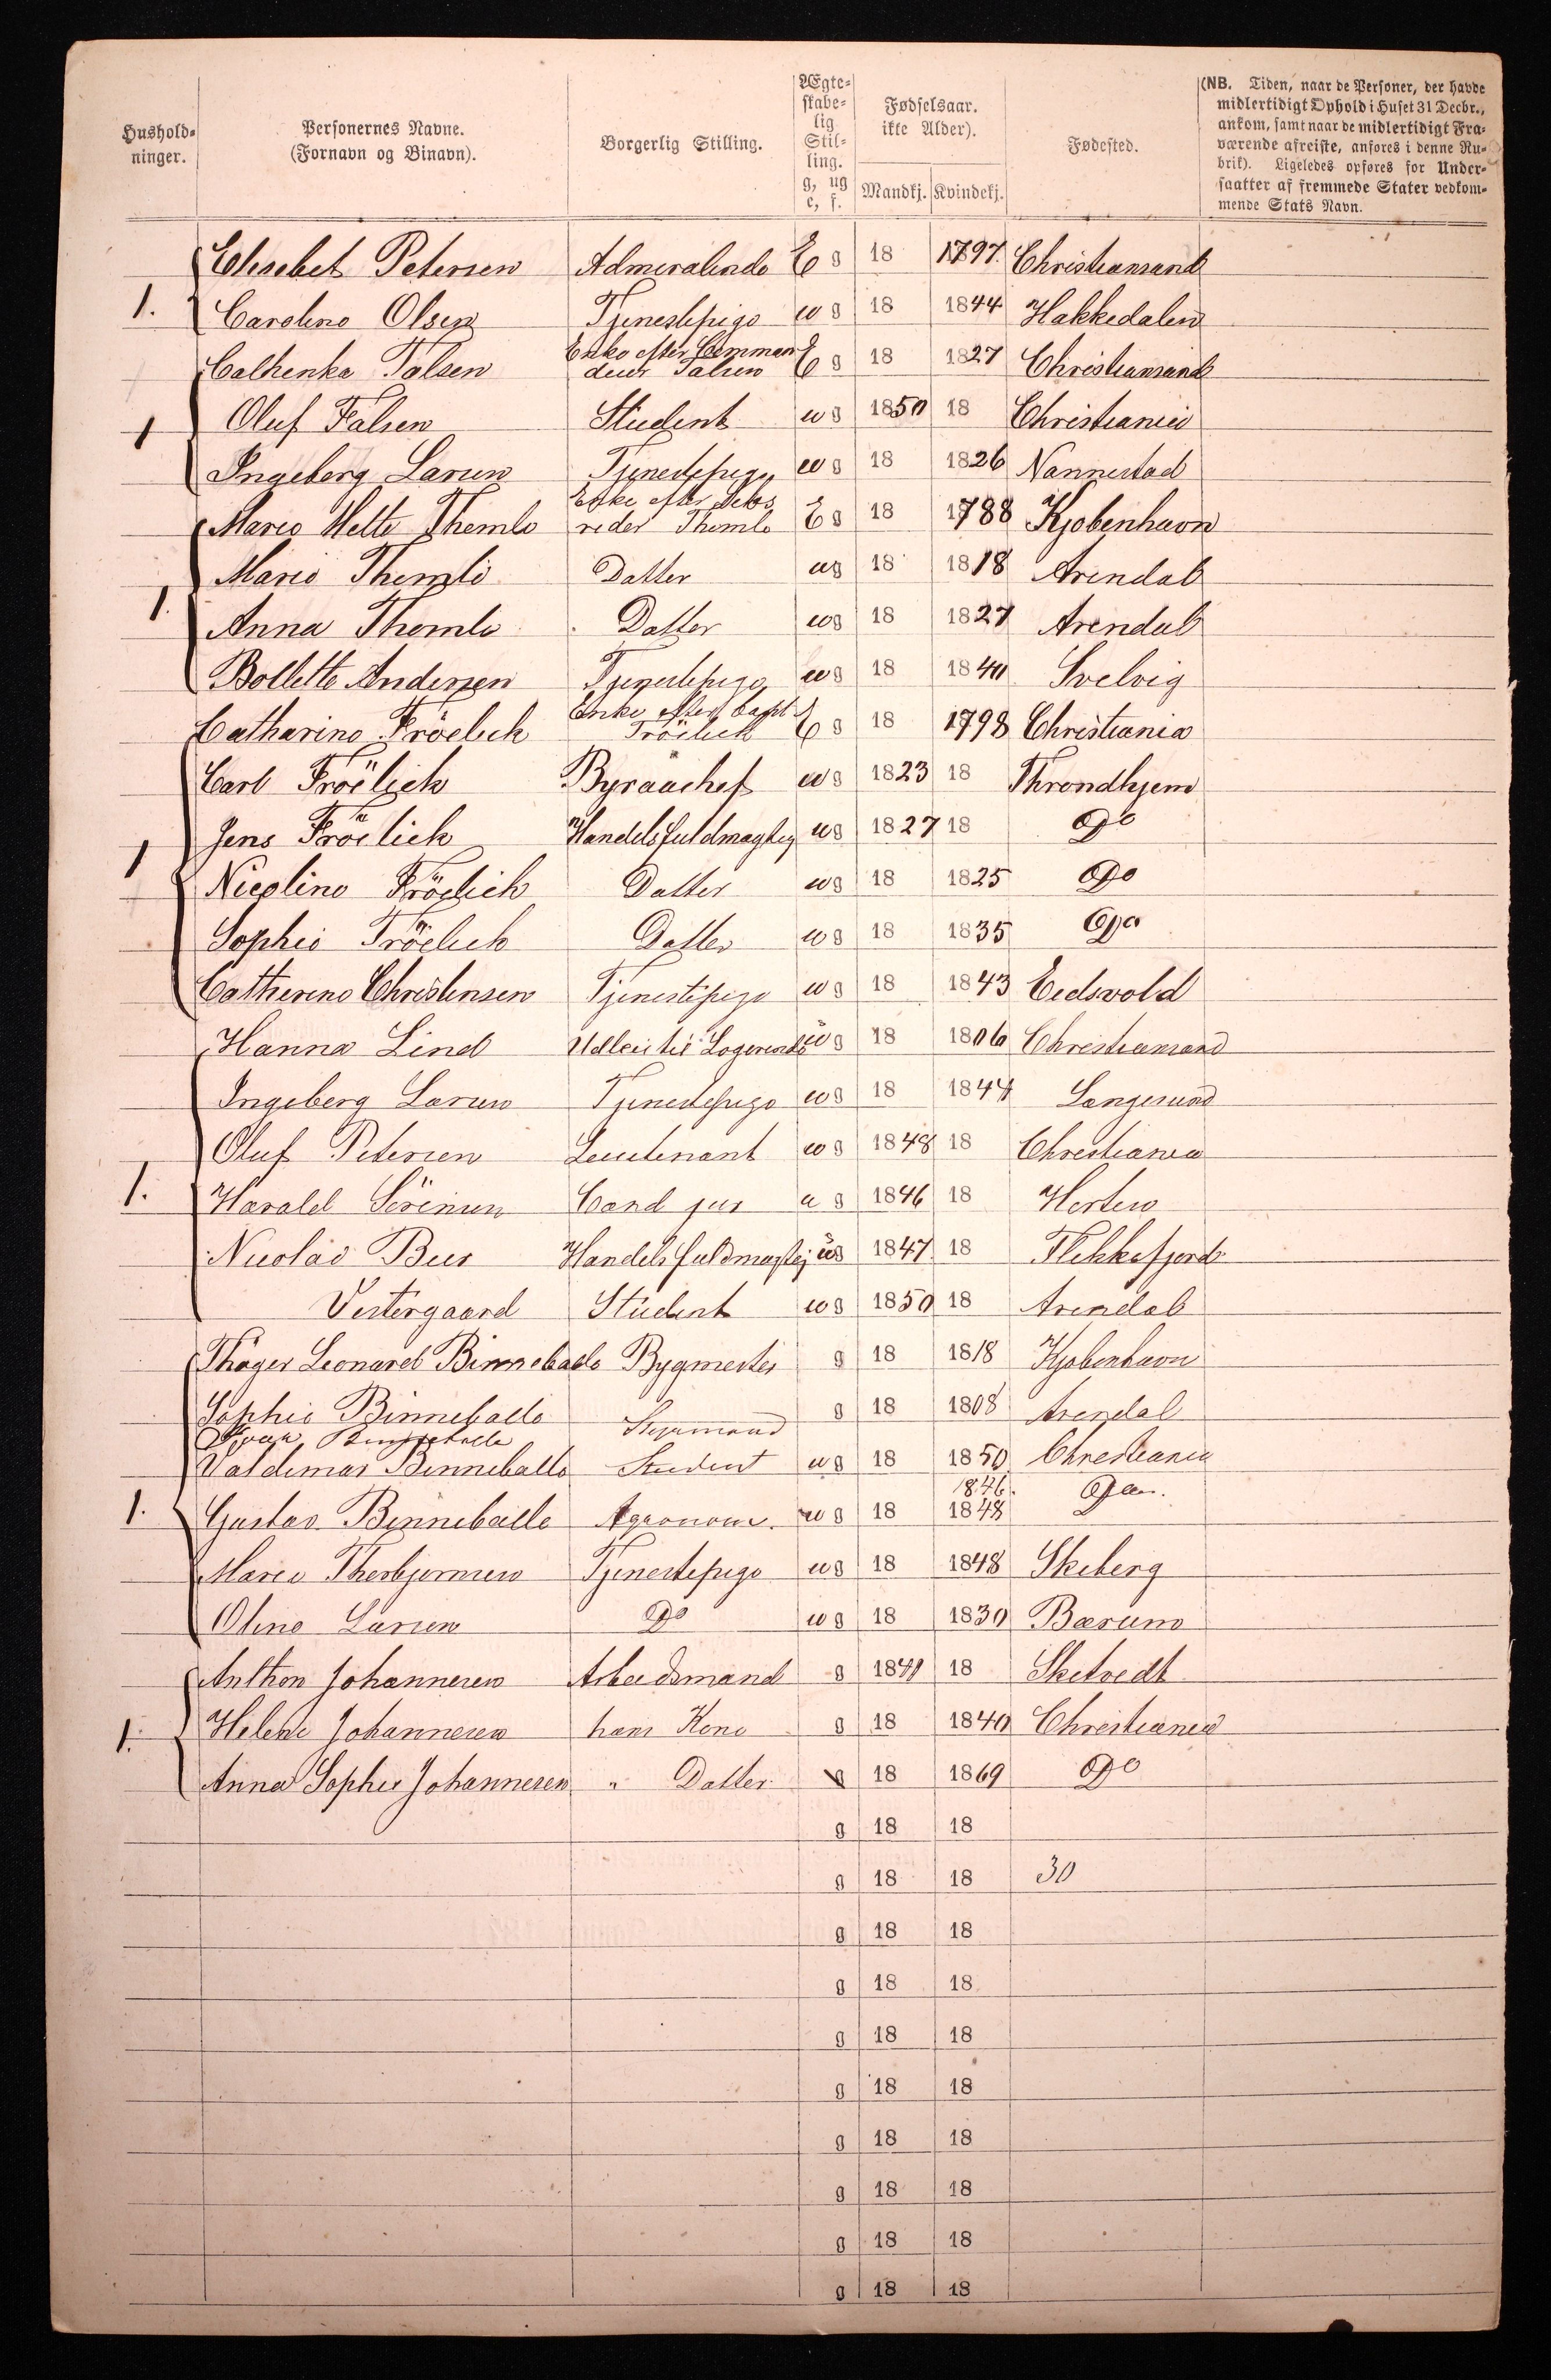 Hushold-
ninger.
Personernes Navne.
(Fornavn og Binavn).
Borgerlig Stilling.
Ægte-
skabe-
lig
Stil-
ling.
g, ug
e, f.
Fødselsaar.
ikke Alder).
Mandkj. Kvindekj.
Fødested.
(NB. Tiden, naar de Personer, der havde
midlertidigt Ophold i Huset 31 Decbr.,
ankom, samt naar de midlertidigt Fra-
værende afreiste, anføres i denne Ru-
brik). Ligeledes opføres for Under-
saatter af fremmede Stater vedkom-
mende Stats Navn.
Elisebet Petersen Admiralinde E g 18 1797 Christiansand
1. Caroline Olsen Tjenestepige u g 18 1844 Hakkedalen
Cathenka Falsen Enke efter Comman-
deur Falsen E g 18 1827 Christiansand
1 Oluf Falsen Student u g 1850 18 Christiania
Ingeborg Larsen Tjenestepige u g 18 1826 Nannestad
Marie Mette Thomle Enke efter
Thomle E g 18 1788 Kjøbenhavn
Marie Thomle Datter u g 18 1818 Arendal
1. Anna Thomle Datter u g 18 1827 Arendal
Bollette Andersen Tjenestepige u g 18 1840 Svelvig
Catharine Fröelich Enke efter Capt
Fröelich E g 18 1798 Christiania
Carl Fröelich Byrauchef u g 1823 18 Throndhjem
Jens Fröelich Handelsfuldmægtig u g 1827 18 Do
1 Nicoline Fröelich Datter u g 18 1825 Do
Sophie Fröelich Datter u g 18 1835 Do
Catherine Christensen Tjenestepige u g 18 1843 Eedsvold
Hanna Lind Udleier til Logerende u g 18 1806 Christiansand
Ingeborg Larsen Tjenestepige u g 18 1844 Langesund
Oluf Petersen Leutenant u g 1848 18 Christiania
1. Harald Sörensen Cand jur u g 1846 18 Horten
Nicolai Beer Handelsfuldmægtig u g 1847 18 Flekkefjord
Vestergaard Student u g 1850 18 Arendal
Thöger Leonard Binneballe Bygmester g 18 1818 Kjøbenhavn
Sophie Binneballe g 18 1808 Arendal
Binneballe Styrmand
Valdemar Binneballe Student u g 18 1850 Christiania
1846.
1. Gustav Binneballe Agronom. u g 18 1848 Do
Maria Thorbjornsen Tjenestepige u g 18 1848 Skeberg
Oline Larsen Do u g 18 1830 Bærum
Anthon Johannesen Arbeidsmand g 1840 18 Sketvedt
1. Helene Johannesen hans Kone g 18 1840 Christiania
Anna Sophie Johannesen " Datter g 18 1869 Do
g 18 18
g 18 18 30
g 18 18
g 18 18
g 18 18
g 18 18
g 18 18
g 18 18
g 18 18
g 18 18